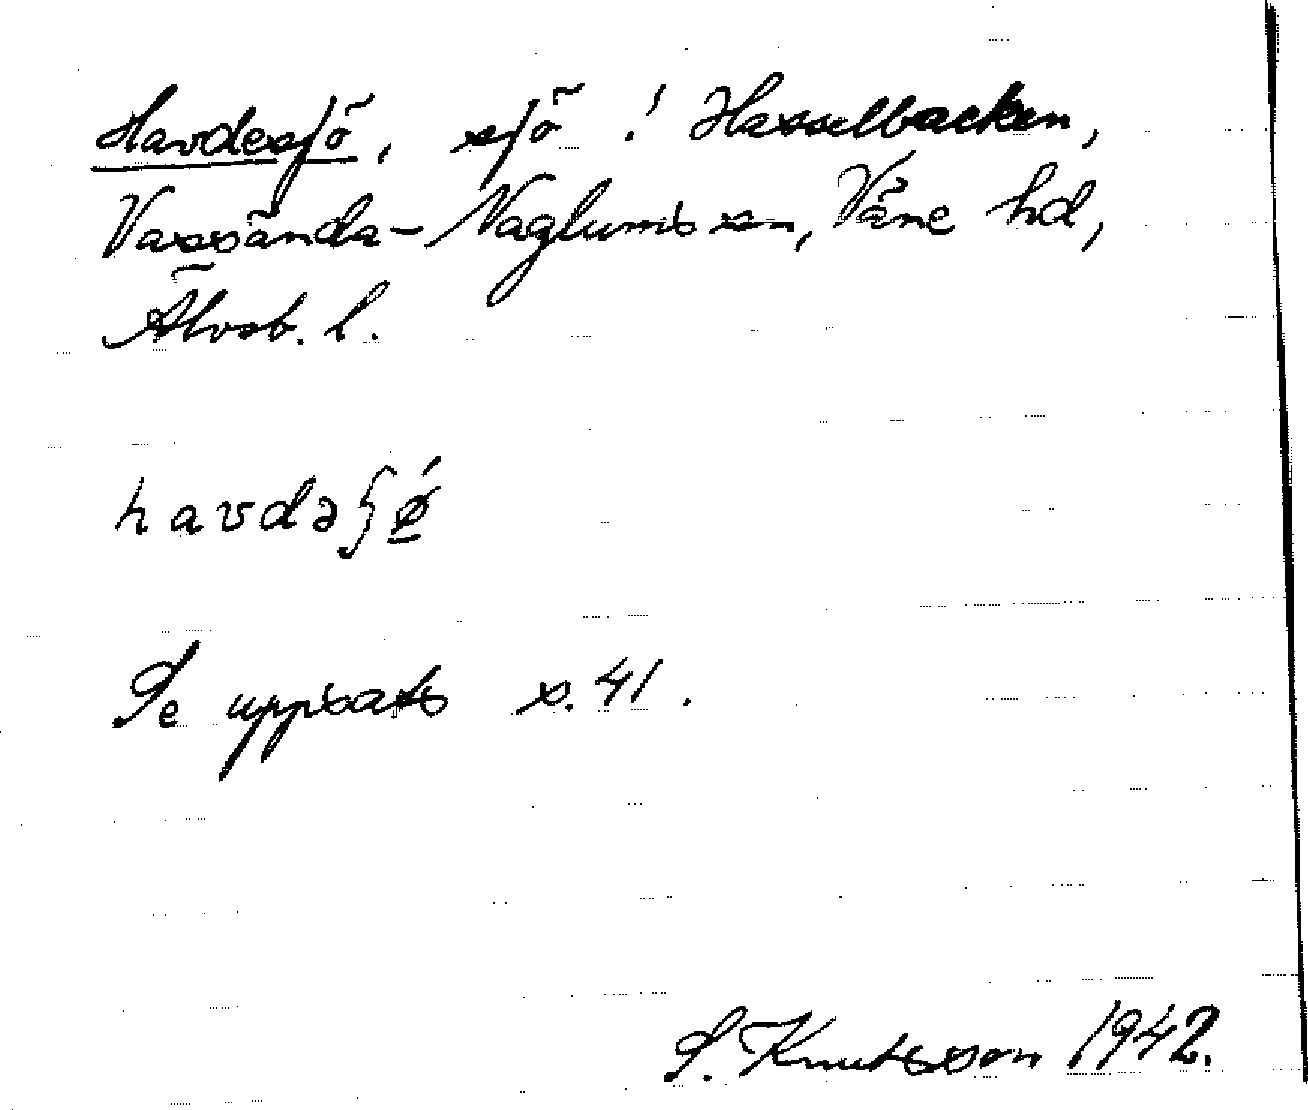 Havdesjö, sjö ! Hasselbacken,
Vassända-Naglums sn, Väne hd,
Älvsb. l.
havdəʃǿ̲
Se uppsats s. 41.
S. Knutsson 1942.